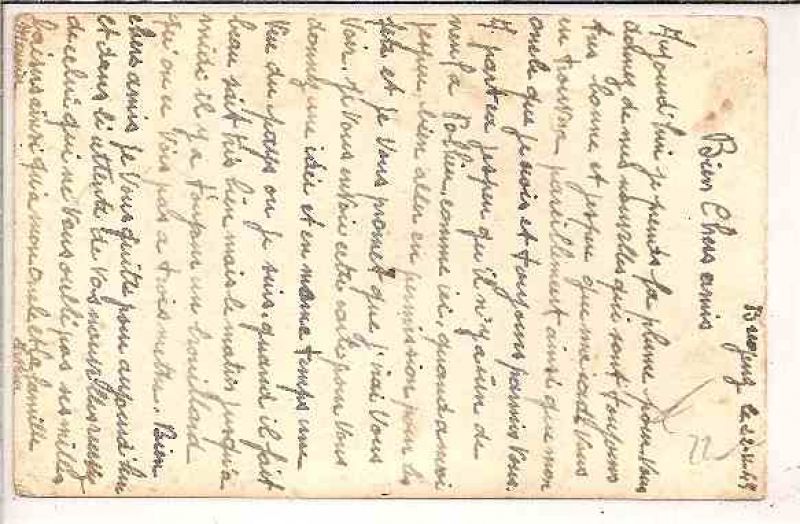 Bregenz le 22
Bien Chers amis
Aujourd'hui je prends la plume pour vous
donnez de mes nouvelles qui sont toujours
très bonne et jespère que ma carte vous
en trouvera pareillement ainsi que mon
oncle que je crois et toujours parmis vous.
A part ca jespère qu'il n'y a rien de
neuf a Pollieu, comme ici, quand a moi
jespère bien aller en permission pour les
fêtes et je vous promet que j'irai vous
voir. je vous envoie cette carte pour vous
donnez une idée et en même temps une
vue du pays ou je suis, quand il fait
beau sait très bien mais le matin jusqu'a
midi il y a toujours un brouillard
qu'on n vois pas a trois mettre. Bien
chers amis je vous quitte pour aujourd'hui
et dans l'attente de vos nouvelles recevez
de celui qui ne vous oublie pas ses milles
baisers ainsi qu'a mon oncle et la famille
22